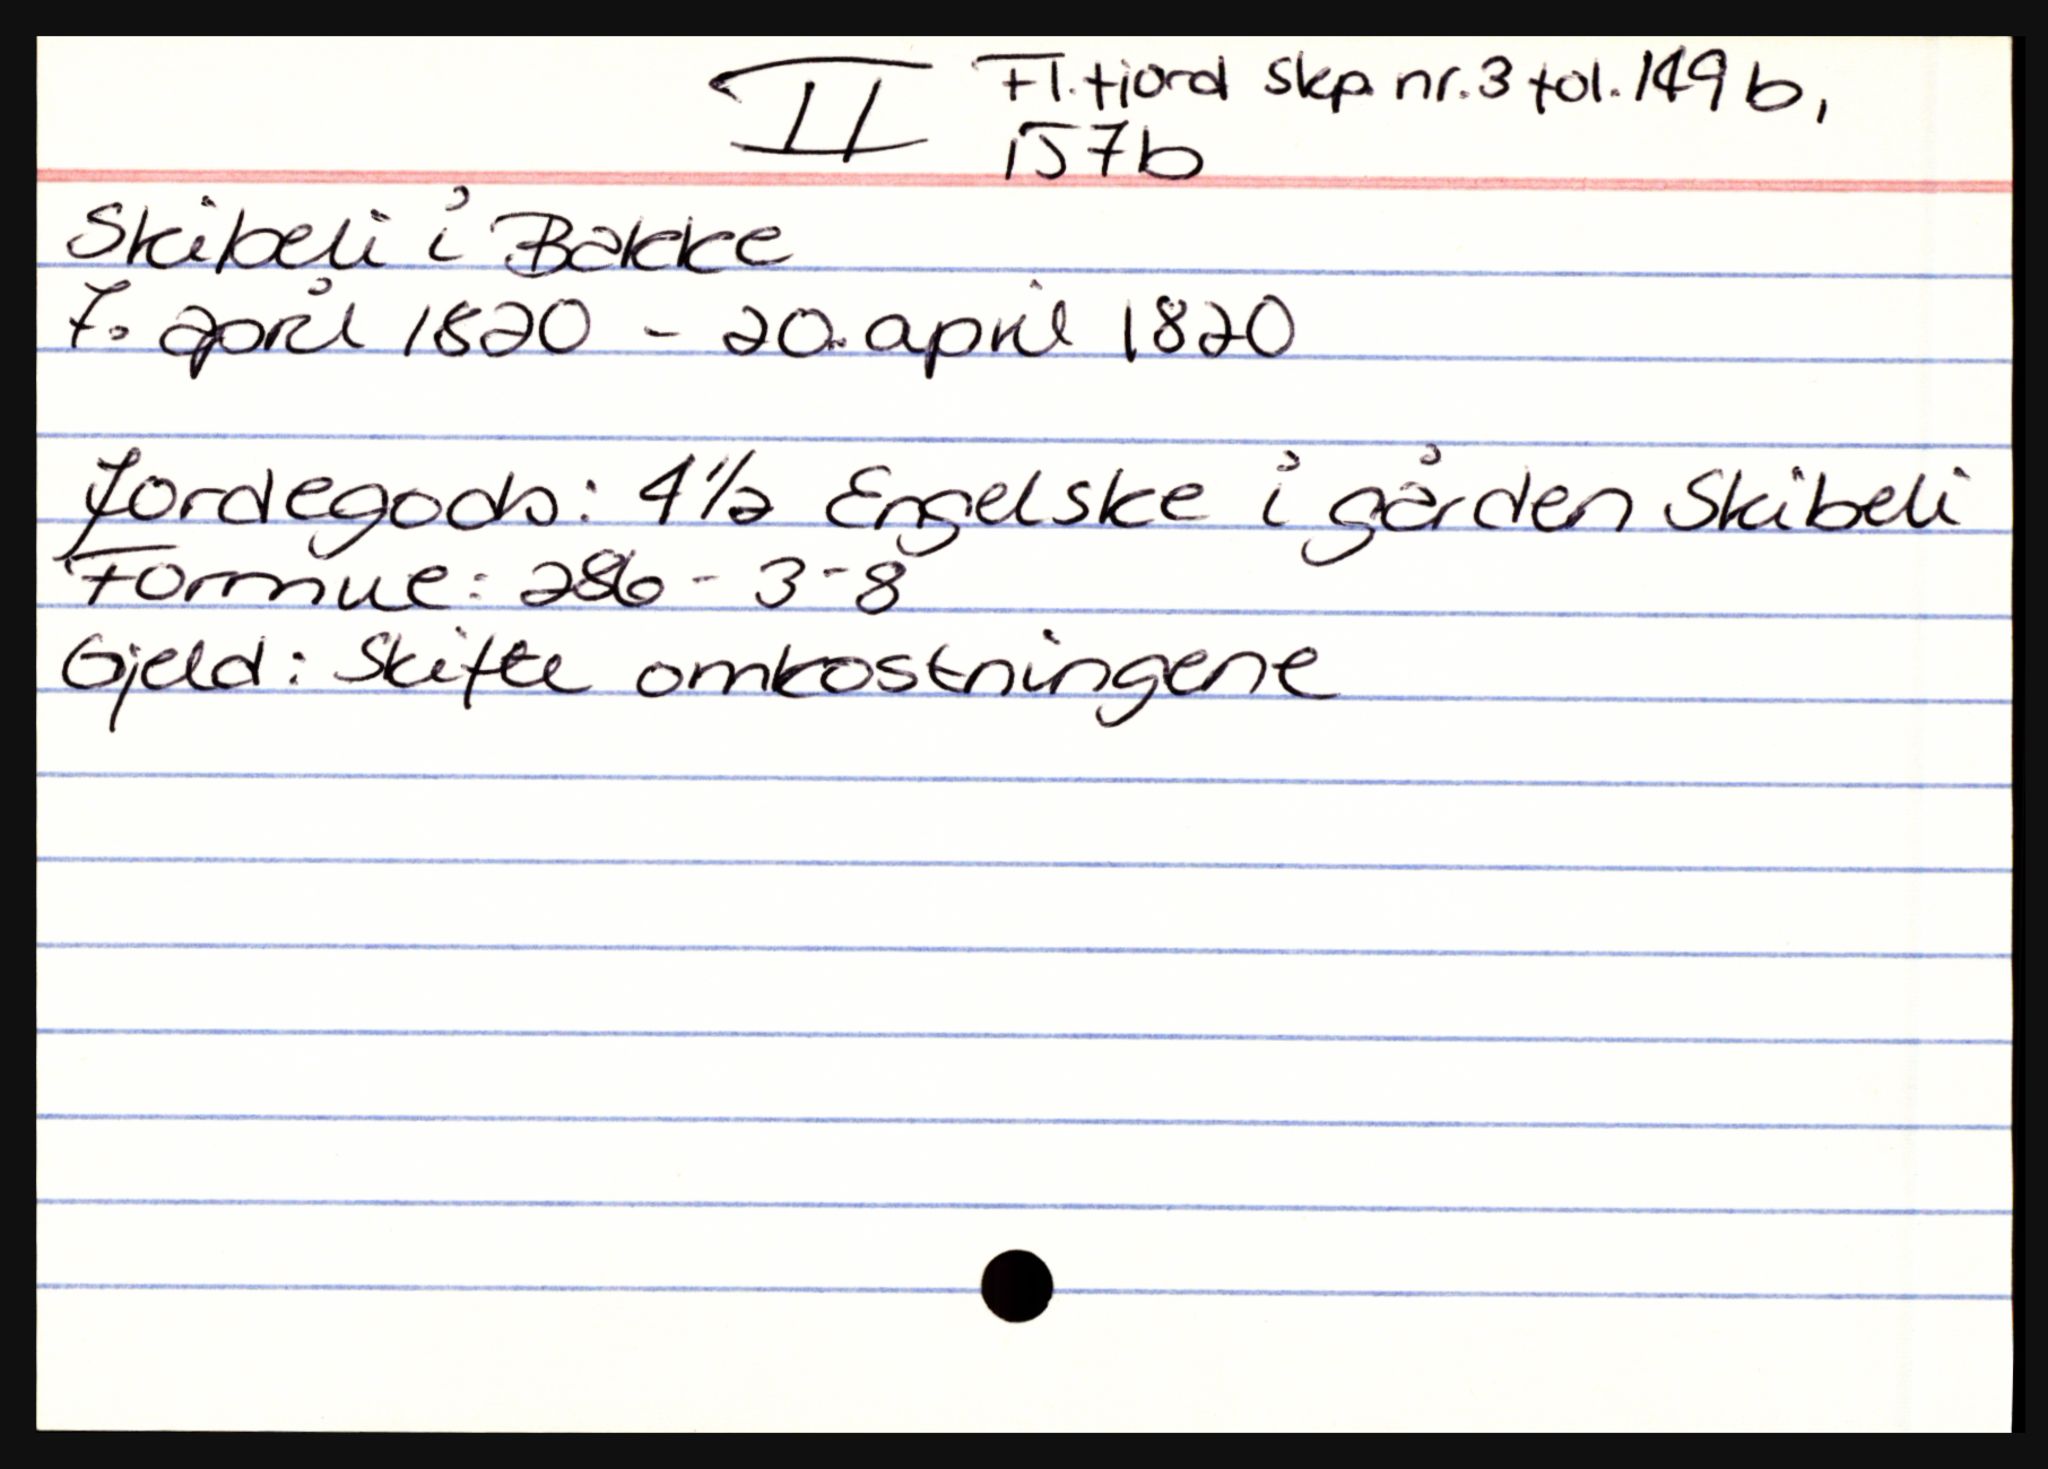 II Fl.fjord skp. nr. 3 fol. 149 b,
157b
Skibeli i Bakke
7. april 1820 - 20. april 1820
Jordegods: 4 1/2 Engelske i gården Skibeli
Formue: 286 - 3 - 8
Gjeld: Skifte omkostningene